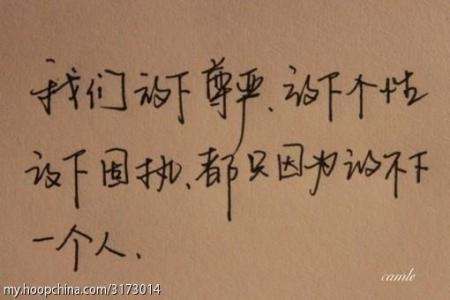 我们放下尊严、放下个性
放下固执、都只因为放不下
一个人、
camle
my.hoopchina.com/3173014